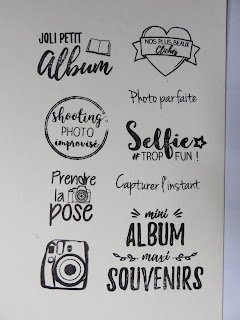 JOLI PETIT
Album
NOS PLUS BEAUX
Clichés
Photo parfaite
shooting
PHOTO
improvisé
Selfie
#TROP FUN !
Prendre
la
pose
Capturer l'instant
mini
ALBUM
maxi
SOUVENIRS